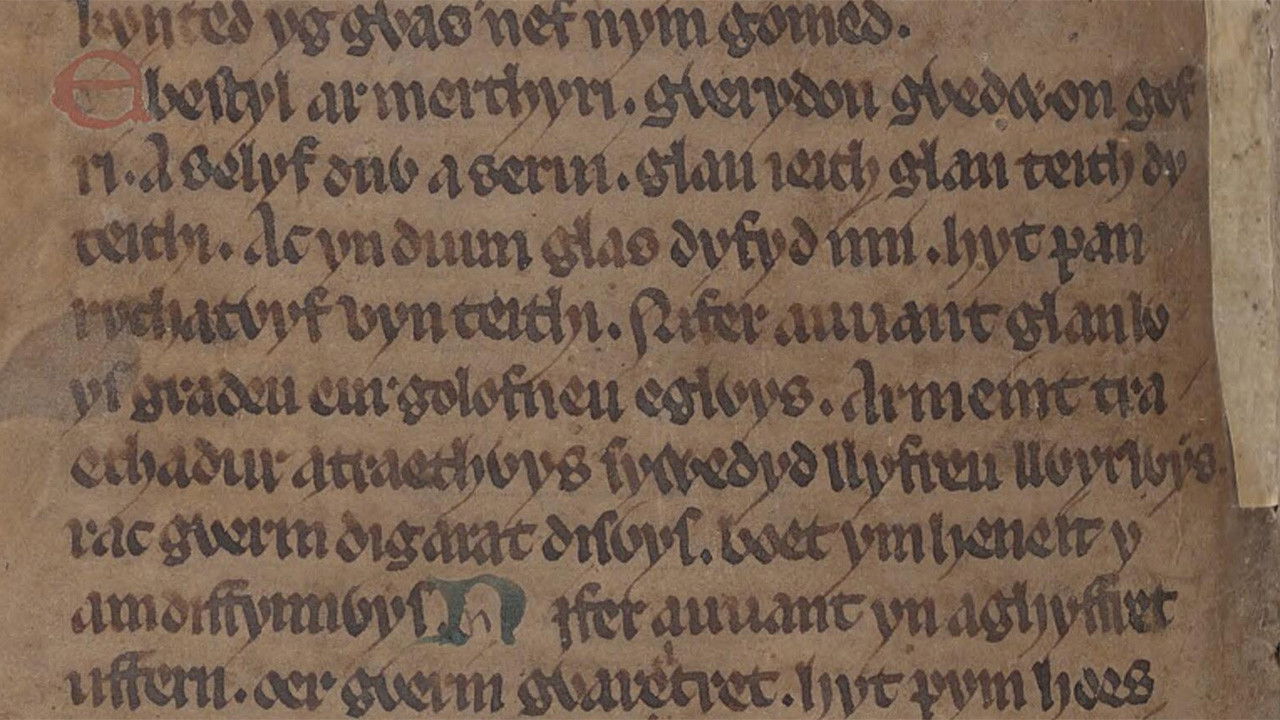 kynted yg gỽlas nef nym gomed.
Ebestyl ar merthyri. gỽerydon gỽedỽon gof
ri. A selyf duỽ a serui. glan ieith glan teith dy
teithi. Ac yn duun glas dyfyd imi. hyt pan
rychatỽyf vyn teithi. Nifer auuant glanhỽ
yſ gradeu eur golofneu eglỽys. Ar meint tra
ethadur a traethỽys sywedyd llyfreu llỽyrỽys.
rac gỽerin digarat disỽys. boet ym heneit y
amdiffynnỽys Nifer auuant yn aghyffret
uffern. oer gỽerin gỽaretret. hyt pym hoes